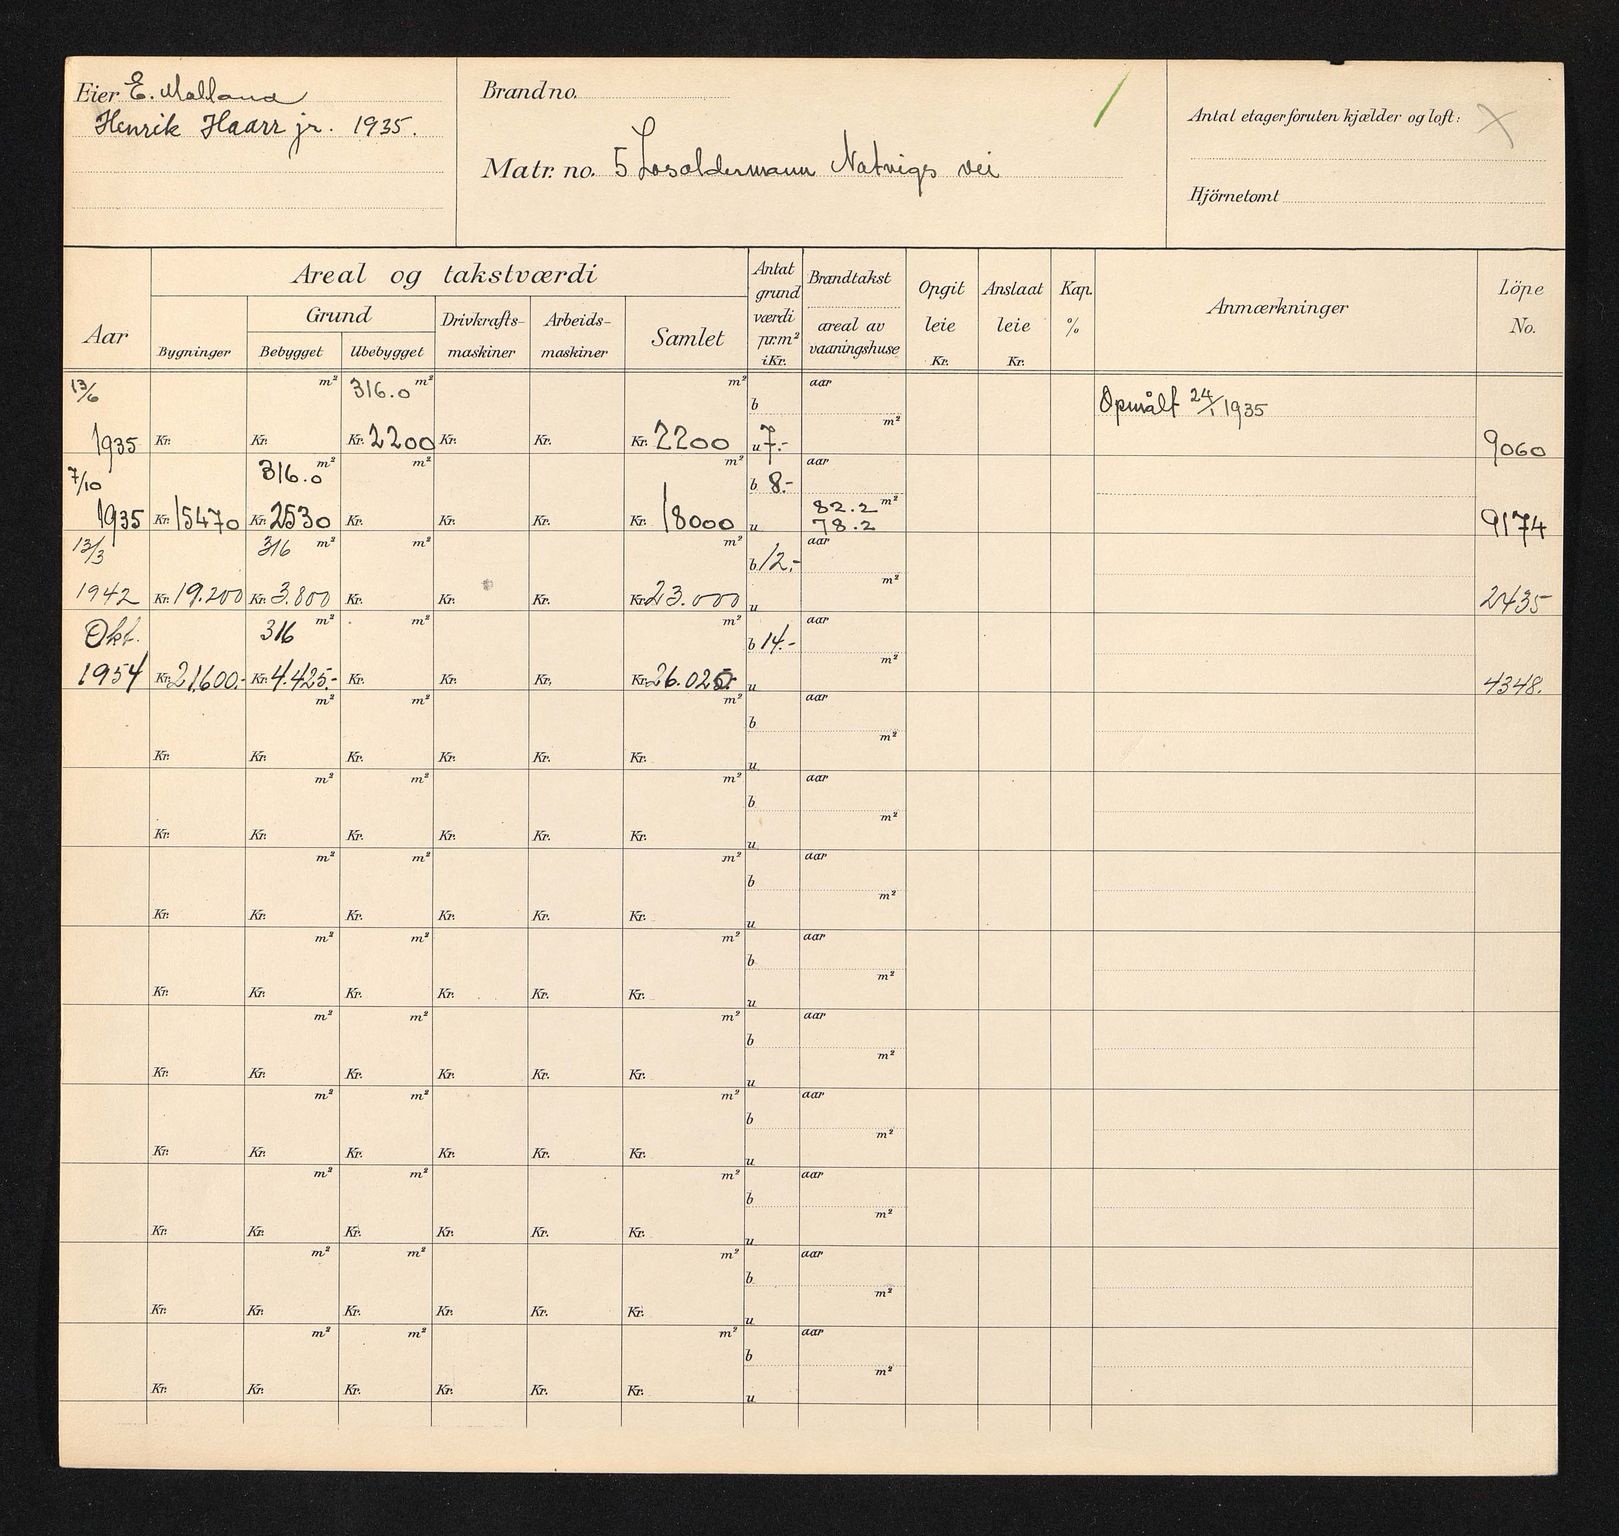 Eier E. Malland
Henrik Haarr jr. 1935.
Brandno.
Matr. no. 5 Losoldermann Natvigs vei
Antal etager foruten kjælder og loft: X
Hjörnetomt
Aar
Areal og takstværdi
Bygninger
Grund
Bebygget Ubebygget
Drivkrafts-
maskiner
Arbeids-
maskiner
Samlet
Antat
grund
værdi
pr.m²
i Kr.
Brandtakst
areal av
vaaningshuse
Opgit
leie
Kr.
Anslaat
leie
Kr.
Kap.
%
Anmærkninger
Löpe
No.
13/6 m² 316.0 m² m² b aar Opmålt 24/1 1935
1935 Kr. Kr. Kr. 2200 Kr. Kr. Kr. 2200 u 7.- m² 9060
7/10 316.0 m² m² m² b 8.- aar
1935 Kr. 15470 Kr. 2530 Kr. Kr. Kr. Kr. 18000 u 82.2 m²
78.2 9174
13/3 316 m² m² m² b 12.- aar
1942 Kr. 19.200 Kr. 3.800 Kr. Kr. Kr. Kr. 23.000 u m² 2435
Okt. 316 m² m² m² b 14.- aar
1954 Kr. 21.600.- Kr. 4.425.- Kr. Kr. Kr. Kr. 26.025.- u m² 4348.
m² m² m² b aar
Kr. Kr. Kr. Kr. Kr. Kr. u m²
m² m² m² b aar
Kr. Kr. Kr. Kr. Kr. Kr. u m²
m² m² m² b aar
Kr. Kr. Kr. Kr. Kr. Kr. u m²
m² m² m² b aar
Kr. Kr. Kr. Kr. Kr. Kr. u m²
m² m² m² b aar
Kr. Kr. Kr. Kr. Kr. Kr. u m²
m² m² m² b aar
Kr. Kr. Kr. Kr. Kr. Kr. u m²
m² m² m² b aar
Kr. Kr. Kr. Kr. Kr. Kr. u m²
m² m² m² b aar
Kr. Kr. Kr. Kr. Kr. Kr. u m²
m² m² m² b aar
Kr. Kr. Kr. Kr. Kr. Kr. u m²